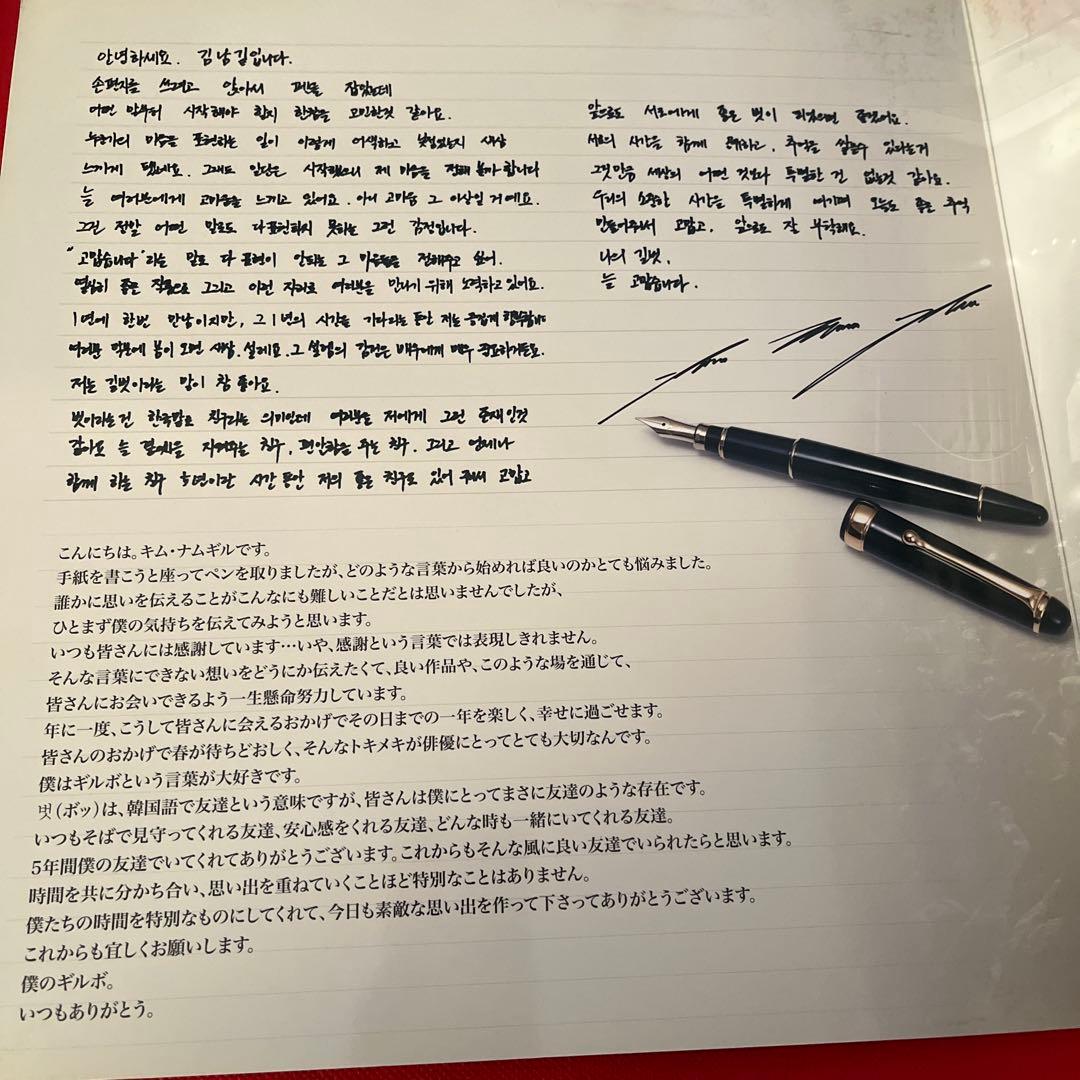 안녕하세요. 김남길입니다.
손편지를 쓰려고 앉아서 펜을 잡았는데
어떤 말부터 시작해야 할지 한참을 고민한것 같아요.
누군가의 마음을 표현하는 일이 이렇게 어색하고 낯설었는지 새삼
느끼게 됐네요. 그래도 일단은 시작했으니 제 마음을 전해 볼까 합니다
늘 여러분에게 고마움을 느끼고 있어요. 아니 고마움 그 이상일 거예요.
그건 정말 어떤 말로도 다 표현하지 못하는 그런 감정입니다.
"고맙습니다"라는 말로 다 표현이 안되는 그 마음들을 전해주고 싶어.
열심히 좋은 작품으로 그리고 이런 자리로 여러분을 만나기 위해 노력하고 있어요.
1년에 한번 만남이지만, 그 1년의 시간을 기다리는 동안 저는 즐겁게
여러분 덕분에 봄이 오면 새삼. 설레요. 그 설렘의 감정은 배우에게 매우 중요하거든요.
저는 길벗이라는 말이 참 좋아요.
벗이라는건 한국말로 친구라는 의미인데 여러분은 저에게 그런 존재인것
같아요 늘 곁에서 지켜주는 친구, 편안함을 주는 친구. 그리고 언제나
함께 하는 친구 5년이란 시간 동안 저의 좋은 친구로 있어 줘서 고맙고
앞으로도 서로에게 좋은 벗이 되었으면 좋겠어요.
서로의 시간을 함께 하고, 추억을 쌓을수 있다는거
그것만큼 세상의 어떤 것보다 특별한 건 없는것 같아요.
우리의 소중한 시간을 특별하게 여기며 오늘도 좋은 추억
만들어주셔서 고맙고, 앞으로도 잘 부탁해요.
나의 길벗,
늘 고맙습니다.
こんにちは。キム・ナムギルです。
手紙を書こうと座ってペンを取りましたが、どのような言葉から始めれば良いのかとても悩みました。
誰かに思いを伝えることがこんなにも難しいことだとは思いませんでしたが、
ひとまず僕の気持ちを伝えてみようと思います。
いつも皆さんには感謝しています…いや、感謝という言葉では表現しきれません。
そんな言葉にできない想いをどうにか伝えたくて、良い作品や、このような場を通じて、
皆さんにお会いできるよう一生懸命努力しています。
年に一度、こうして皆さんに会えるおかげでその日までの一年を楽しく、幸せに過ごせます。
皆さんのおかげで春が待ちどおしく、そんなトキメキが俳優にとってとても大切なんです。
僕はギルボという言葉が大好きです。
벗(ボッ)は、韓国語で友達という意味ですが、皆さんは僕にとってまさに友達のような存在です。
いつもそばで見守ってくれる友達、安心感をくれる友達、どんな時も一緒にいてくれる友達。
5年間僕の友達でいてくれてありがとうございます。これからもそんな風に良い友達でいられたらと思います。
時間を共に分かち合い、思い出を重ねていくことほど特別なことはありません。
僕たちの時間を特別なものにしてくれて、今日も素敵な思い出を作って下さってありがとうございます。
これからも宜しくお願いします。
僕のギルボ。
いつもありがとう。